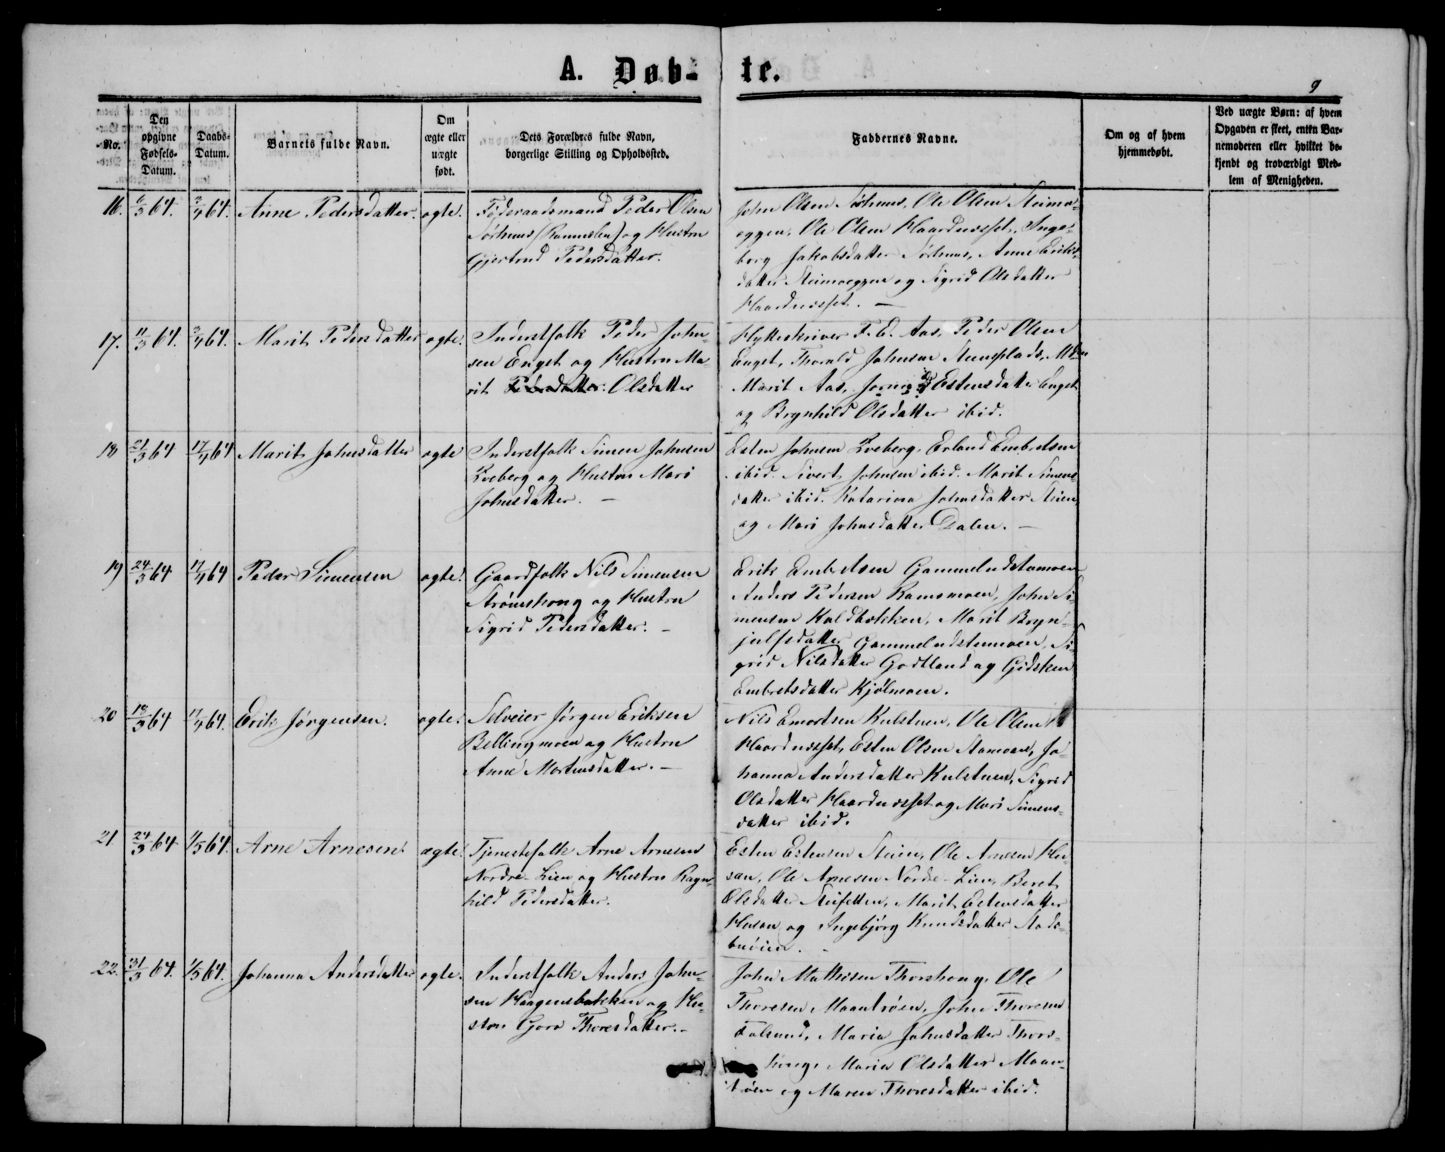 A. Døb- te.
9
No.
Den opgivne Fødsels-Datum.
Daabs-Datum.
Barnets fulde Navn.
Om ægte eller uægte født.
Dets Forældres fulde Navn, borgerlige Stilling og Opholdssted.
Faddernes Navne.
Om og af hvem hjemmedøbt.
Ved uægte Børn: af hvem Opgaven er skeet, enten Barnemoderen eller hvilket bekjendt og troværdigt Medlem af Menigheden.
16. 64. 64. Anne Pedersdatter. ægte. Føderaadsmand Peder Olsen
Sørhuus og Hustru
Gjertrud Pedersdatter.
John Olsen Sørhuus, Ole Olsen Steimo-
eggen, Ole Olsen Haardnæsset, Inge-
borg Jakobsdatter Sørhuus, Anne Eriks-
datter Steimoeggen og Sigrid Olsdatter
Haardnæsset. —
17. 11/3 64. 64. Marit Pedersdatter ægte. Inderstfolk Peder John-
sen Enget og Hustru Ma-
rit Pedersdatter. Olsdatter
Hytteskriver F. E. Aas, Peder Olsen
Enget, Thorald Johnsen
Marit Aas, Estensdatter Enget
og Brynhild Olsdatter ibid.
18 21/3 64 17/4 64 Marit Johnsdatter ægte Inderstfolk Simen Johnsen
Kveberg og Hustru Mari
Johnsdatter. —
Esten Johnsen Kveberg, Erland Embretsen
ibid. Sivert Johnsen ibid. Marit Simens-
datter ibid. Katarina Johnsdatter Steien
og Mari Johnsdatter Dalen. —
19 24/3 64 17/4 64 Peder Simensen ægte. Gaardfolk Nils Simensen
Strømskong og Hustru
Sigrid Pedersdatter. —
Erik Embretsen Gammeludstumoen
Anders Pedersen Ramsmoen, John Si-
mensen Koldbækken, Marit Bryn-
julfsdatter Gammeludstumoen, Si-
grid Nilsdatter Godtland og Gidsken
Embretsdatter Kjølmoen.
20 18/3 64 17/4 64. Erik Jørgensen. ægte. Selveier Jørgen Eriksen
Bellingmoen og Hustru
Anne Mortensdatter. —
Nils Emortsen Kulstuen, Ole Olsen
Haardnæsset, Esten Olsen Stamoen, Jo-
hanna Andersdatter Kulstuen, Sigrid
Olsdatter Haardnæsset og Mari Simens-
datter ibid.
21 24/3 64 1/5 64. Arne Arnesen ægte. Tjenestefolk Arne Arnesen
Nordre-Lien og Hustru Ragn-
hild Pedersdatter.
Esten Estensen Steien, Ole Arnesen Hu-
san, Ole Arnesen Nordre-Lien, Beret
Olsdatter, Marit Estensdatter
Husan og Ingebjørg Knudsdatter Stads-
buøien.
22. 31/3 64. 1/5 64. Johanna Andersdatter ægte. Inderstfolk Anders John-
sen Haagensbakken og Hu-
stru Gjøra Thoresdatter. —
John Mathisen Thorshong, Ole
Thoresen Maantrøen, John Thoresen
Maria Johnsdatter Thors-
hong, Maria Olsdatter Maan-
trøen og Maren Thoresdatter ibid.